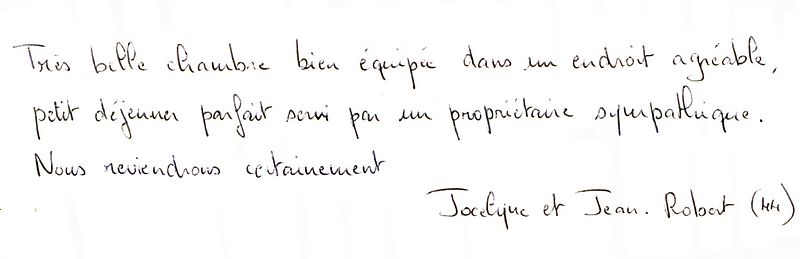 Très belle chambre bien équipée dans un endroit agréable,
petit déjeuner parfait servi par un propriétaire sympathique.
Nous reviendrons certainement
Jocelyne et Jean. Robert (44)